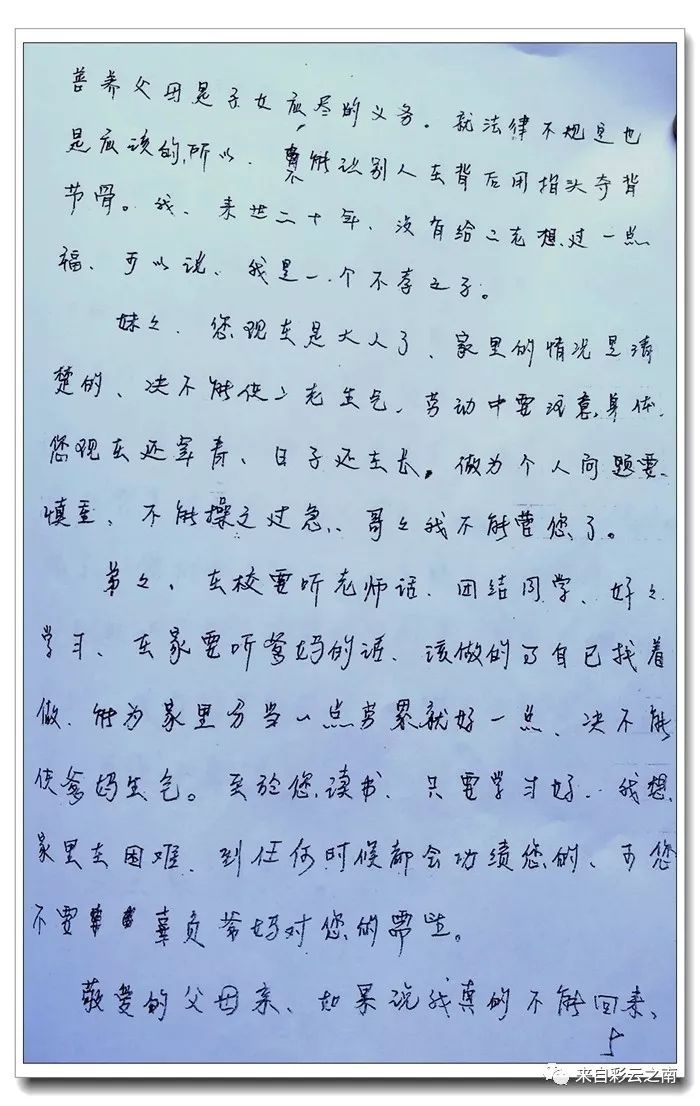 善养父母是子女应尽的义务。就法律不规定也
是应该的,所以、不能让别人在背后用指头夺背
节骨。我、来世二十年、没有给二老想过一点
福、可以说、我是一个不孝之子。
妹々、您现在是大人了、家里的情况是清
楚的、决不能使二老生气、劳动中要注意身体、
您现在还年青、日子还在长。做为个人问题要
慎重、不能操之过急、哥々我不能管您了。
弟々、在校要听老师话、团结同学、好々
学习、在家要听爹妈的话、该做的了自己找着
做、能为家里分当一点劳累就好一点、决不能
使爹妈生气。至於您读书、只要学习好、我想、
家里在困难、到任何时候都会功绩您的、可您
不要辜负爹妈对您的
敬爱的父母亲、如果说我真的不能回来、
5
来自彩云之南